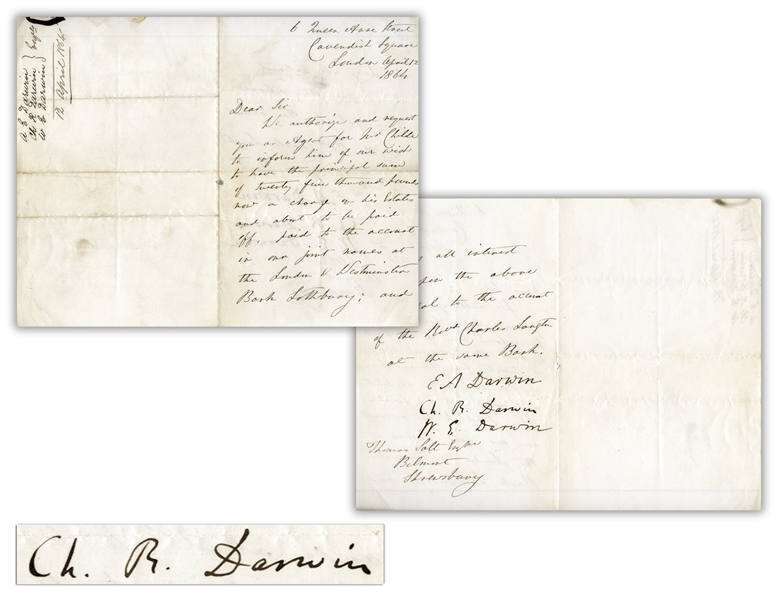 6 Queen Anne Street
Cavendish Square
London April 12
1864
Dear Sir
We authorize and request
you as Agent for Mr Childe
to inform him of our wish
to have the principal sum
of twenty five thousand pounds
now a charge on his Estates
and about to be paid
off, paid to the account
in our joint names at
the London & Westminster
Bank Lothbury; and
E A Darwin
Ch R Darwin
W E Darwin
12 April 1864
all interest
upon the above
to the account
of the Revd Charles Langton
at the same Bank.
E A Darwin
Ch. R. Darwin
W. E. Darwin
Thomas Salt Esqre
Belmont
Shrewsbury
Ch. R. Darwin